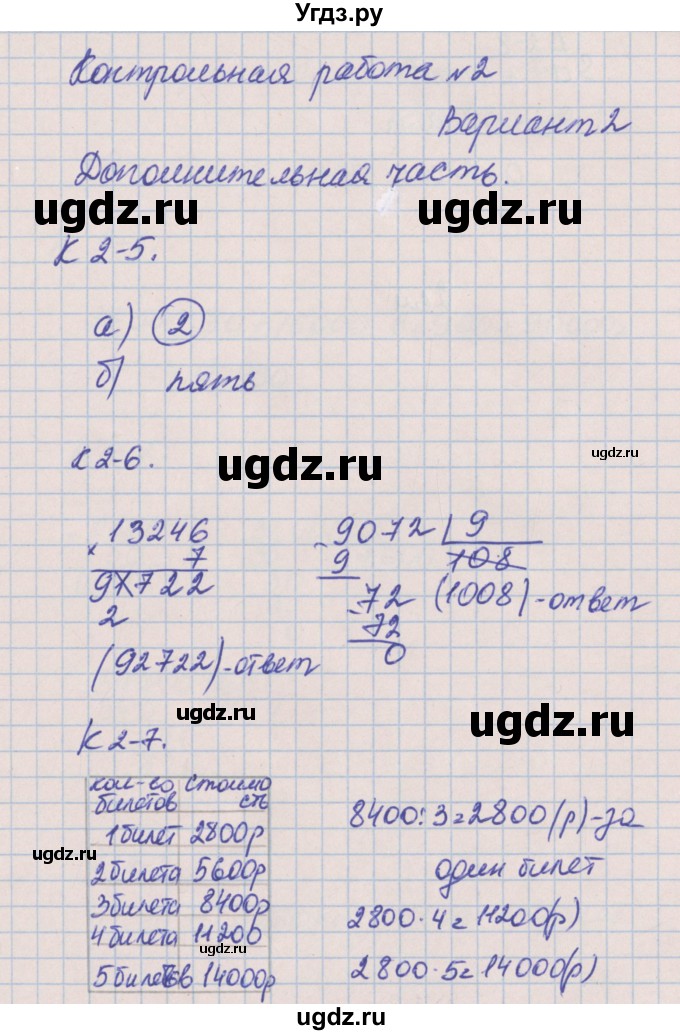 Угдз.ру
Контрольная работа №2
Вариант 2
Дополнительная часть.
ugdz.ru ugdz.ru
К 2-5.
а) 2
б) пять
К 2-6.
ugdz.ru
13246 9072 | 9
× 7 - 9 108
91722 72 (1008) - ответ
2 - 72
0
(92722) - ответ
ugdz.ru ugdz.ru
К 2-7.
кол-во билетов стоимость
1 билет 2800р 8400:3=2800(р) - за
ugdz.ru
2 билета 5600р один билет
3 билета 8400р 2800·4=11200(р)
4 билета 11200
ugdz.ru
5 билетов 14000р 2800·5=14000(р)
ugdz.ru ugdz.ru